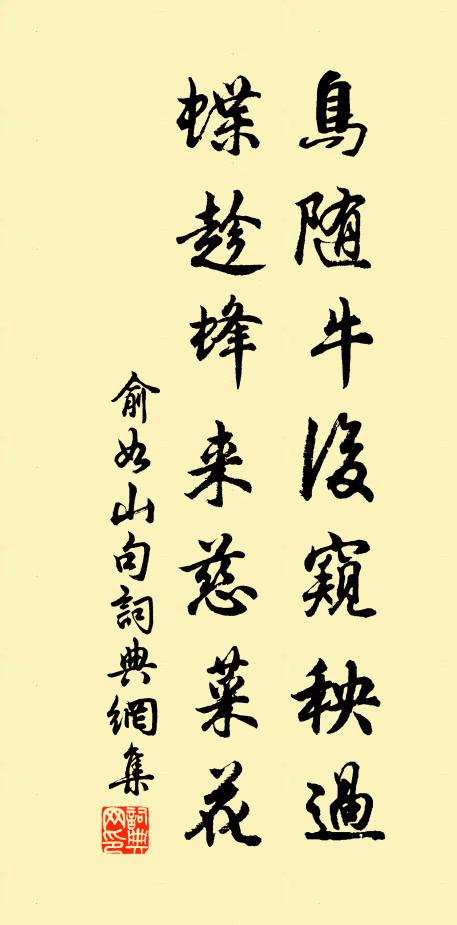 鳥随牛後窺秧過
蝶趁蜂来惹菜花
俞如山句詞典網集
詞典网印